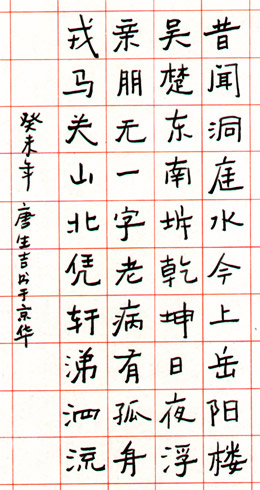 昔闻洞庭水今上岳阳楼
吴楚东南坼乾坤日夜浮
亲朋无一字老病有孤舟
戎马关山北凭轩涕泗流
癸未年 唐生吉书于京华